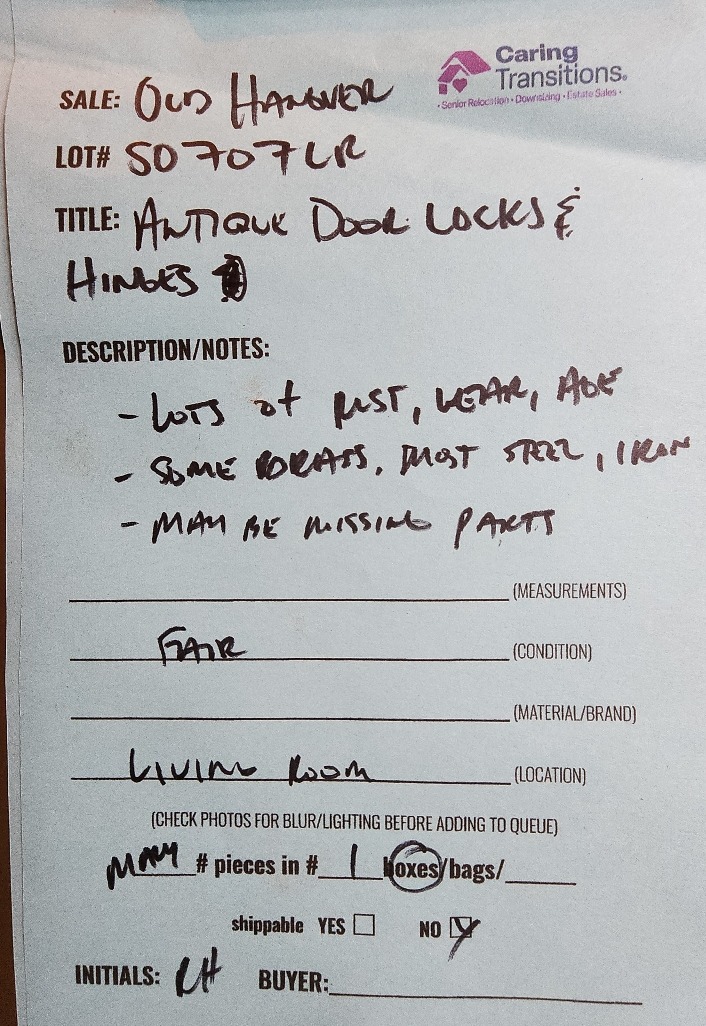 Caring
Transitions®
• Senior Relocation • Downsizing • Estate Sales •
SALE: OLD HANOVER
LOT# SO707LR
TITLE: ANTIQUE DOOR LOCKS &
HINGES
DESCRIPTION/NOTES:
- LOTS OF RUST, WEAR, AGE
- SOME BRASS, MOST STEEL, IRON
- MAY BE MISSING PARTS
(MEASUREMENTS)
FAIR (CONDITION)
(MATERIAL/BRAND)
LIVING ROOM (LOCATION)
(CHECK PHOTOS FOR BLUR/LIGHTING BEFORE ADDING TO QUEUE)
MANY # pieces in # 1 boxes/bags/
shippable YES ☐ NO ☑
INITIALS: RH BUYER: